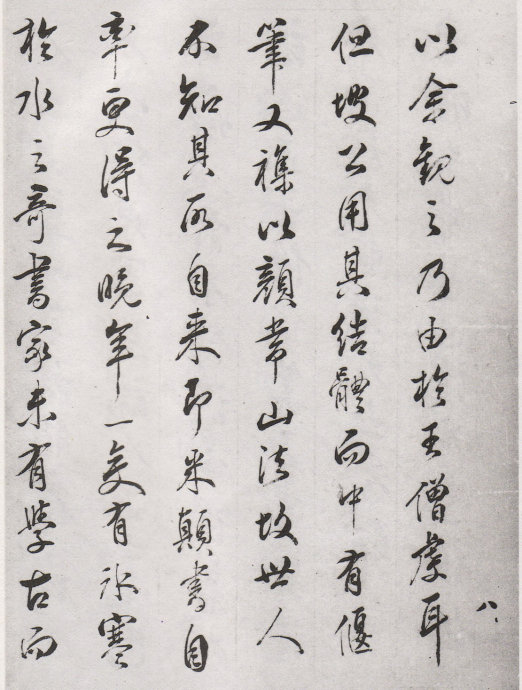 八
以余觀之乃由於王僧虔耳
但坡公用其結體而中有偃
筆又襍以顏常山法故世人
不知其所自来即米顛書自
率更得之晚年一變有冰寒
於水之奇書家未有學古而